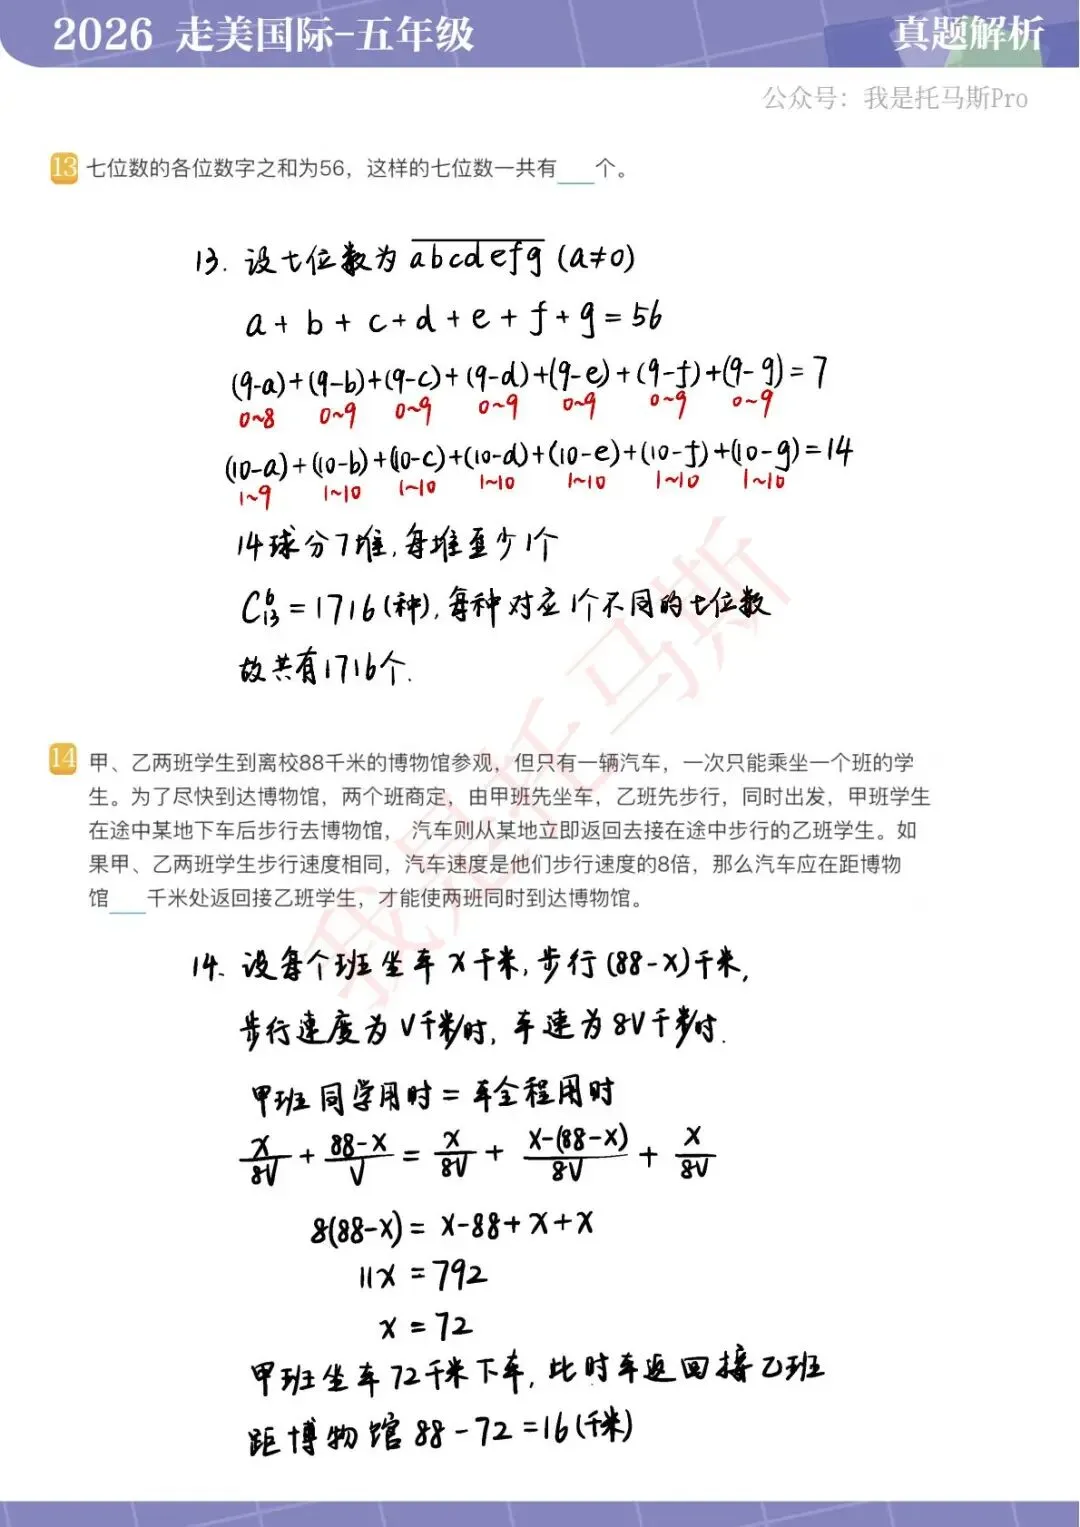 2026 走美国际-五年级
真题解析
公众号：我是托马斯Pro
13 七位数的各位数字之和为56，这样的七位数一共有___个。
13. 设七位数为 abcdefg (a≠0)
a+b+c+d+e+f+g=56
(9-a)+(9-b)+(9-c)+(9-d)+(9-e)+(9-f)+(9-g)=7
0~8 0~9 0~9 0~9 0~9 0~9 0~9
(10-a)+(10-b)+(10-c)+(10-d)+(10-e)+(10-f)+(10-g)=14
1~9 1~10 1~10 1~10 1~10 1~10 1~10
14球分7堆,每堆至少1个
C₁₃⁶=1716(种),每种对应1个不同的七位数
故共有1716个.
14 甲、乙两班学生到离校88千米的博物馆参观，但只有一辆汽车，一次只能乘坐一个班的学
生。为了尽快到达博物馆，两个班商定，由甲班先坐车，乙班先步行，同时出发，甲班学生
在途中某地下车后步行去博物馆， 汽车则从某地立即返回去接在途中步行的乙班学生。如
果甲、乙两班学生步行速度相同，汽车速度是他们步行速度的8倍，那么汽车应在距博物
馆___千米处返回接乙班学生，才能使两班同时到达博物馆。
14. 设每个班坐车x千米,步行(88-x)千米,
步行速度为V千米/时,车速为8V千米/时.
甲班同学用时=车全程用时
x/8V + (88-x)/V = x/8V + (x-(88-x))/8V + x/8V
8(88-x)=x-88+x+x
11x=792
x=72
甲班坐车72千米下车,此时车返回接乙班
距博物馆88-72=16(千米)
我是托马斯